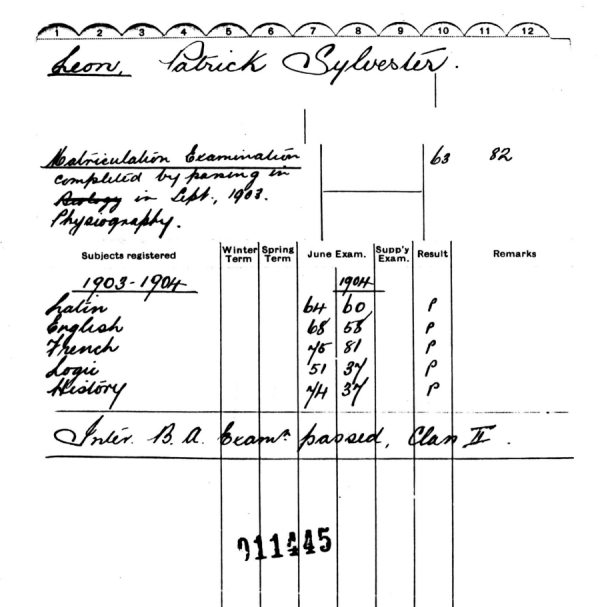 1 2 3 4 5 6 7 8 9 10 11 12
Leon, Patrick Sylvester.
Matriculation Examination 63 82
completed by passing in
Biology in Sept., 1903.
Physiography.
Subjects registered Winter Term Spring Term June Exam. Supp'y Exam. Result Remarks
1903-1904 1904
Latin 64 60 P
English 68 58 P
French 75 81 P
Logic 51 37 P
History 74 37 P
Inter. B.A. Examn. passed, Class II.
011445